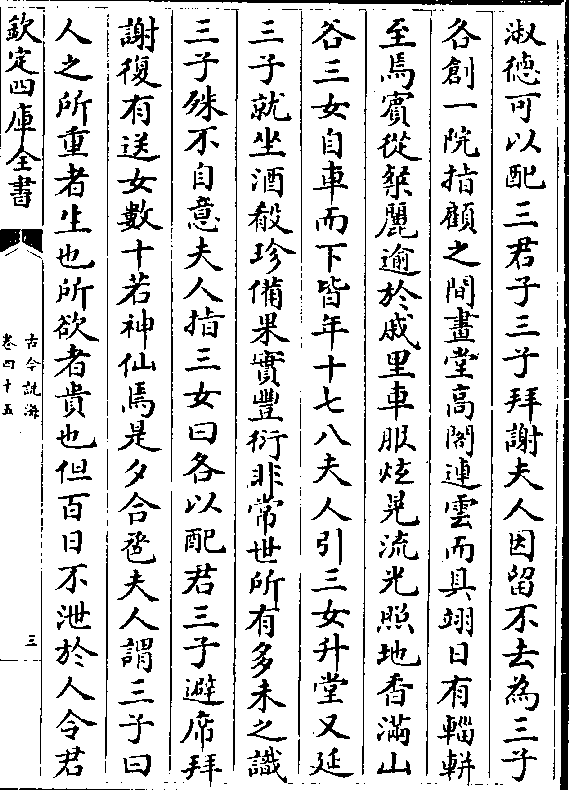 淑徳可以配三君子三子拜謝夫人因留不去為三子
各創一院指顧之間畫堂高閣連雲而具翊日有輜軿
至焉賓從粲麗逾於戚里車服炫晃流光照地香滿山
谷三女自車而下皆年十七八夫人引三女升堂又延
三子就坐酒殽珍備果實豐衍非常世所有多未之識
三子殊不自意夫人指三女曰各以配君三子避席拜
謝復有送女數十若神仙焉是夕合巹夫人謂三子曰
人之所重者生也所欲者貴也但百日不泄於人令君
欽定四庫全書
古今説海
卷四十五
三